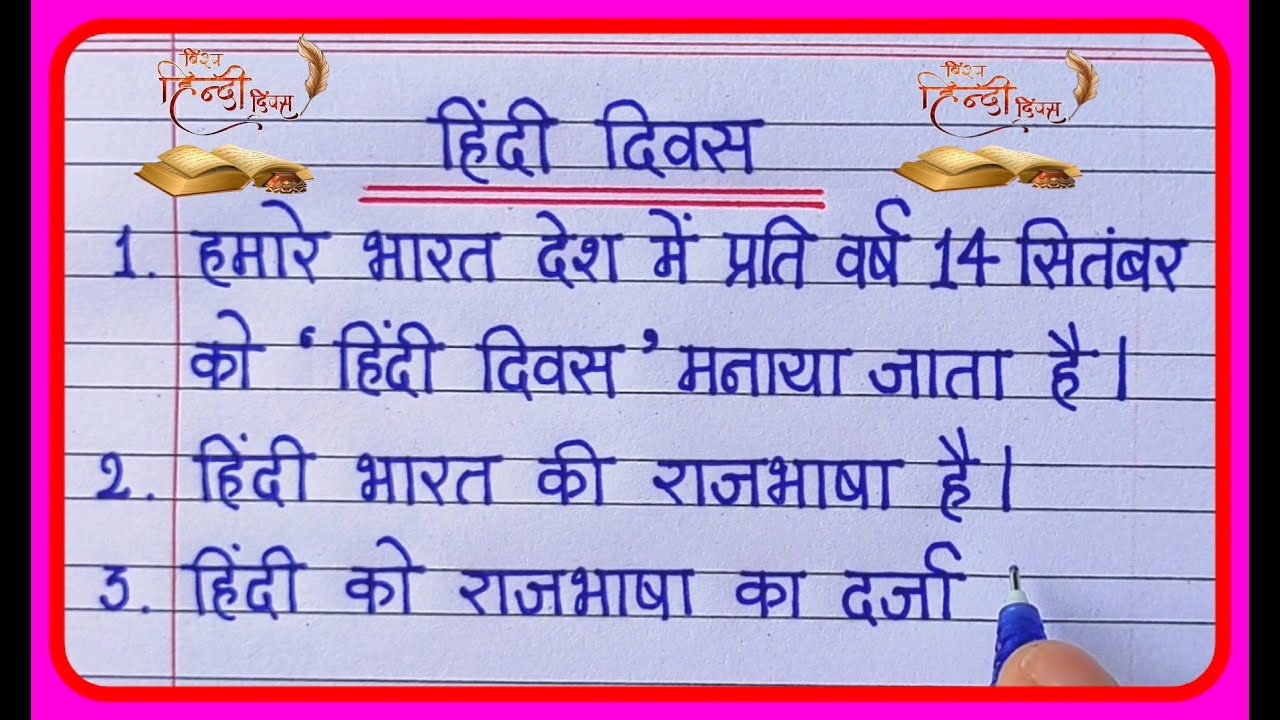 विश्व
हिन्दी दिवस
विश्व
हिन्दी दिवस
हिंदी दिवस
1. हमारे भारत देश में प्रति वर्ष 14 सितंबर
को ‘हिंदी दिवस’ मनाया जाता है।
2. हिंदी भारत की राजभाषा है।
3. हिंदी को राजभाषा का दर्जा